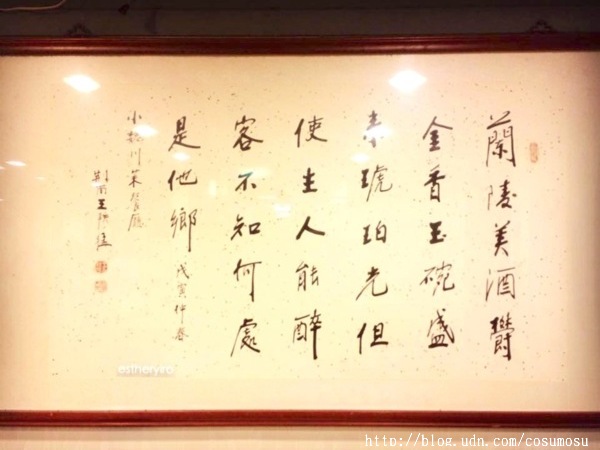 蘭陵美酒鬱
金香玉碗盛
来琥珀光但
使主人能醉
客不知何處
是他鄉 戊寅仲春
小魏川菜餐廳
estheryiro
http://blog.udn.com/cosumosu